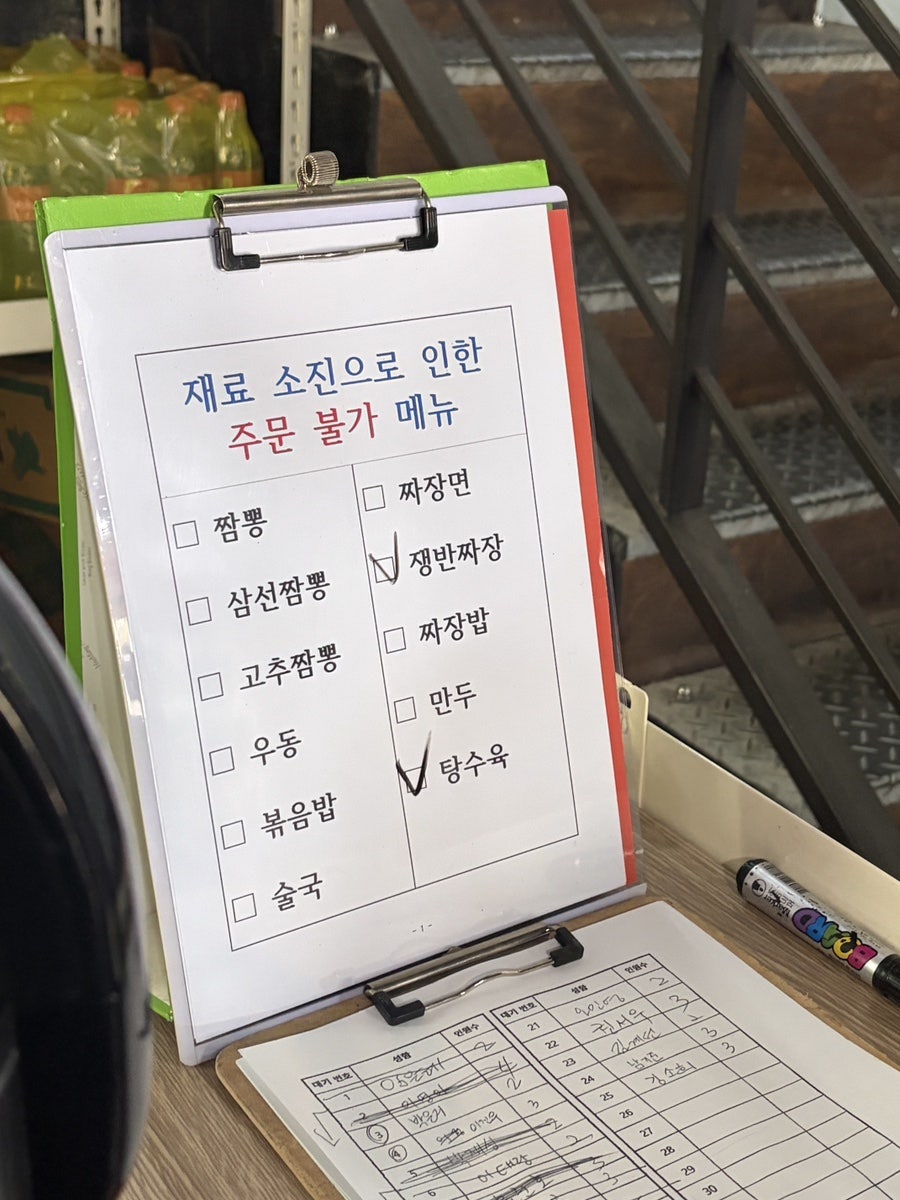 재료 소진으로 인한
주문 불가 메뉴
짬뽕
삼선짬뽕
고추짬뽕
우동
볶음밥
술국
짜장면
쟁반짜장
짜장밥
만두
탕수육
- 1 -
BOARD
대기 번호 성함 인원수
1
2
3 2
4 3
5 2
6 2
대기 번호 성함 인원수
21 2
22 3
23 2
24 3
25 3
26
27
28
29
30